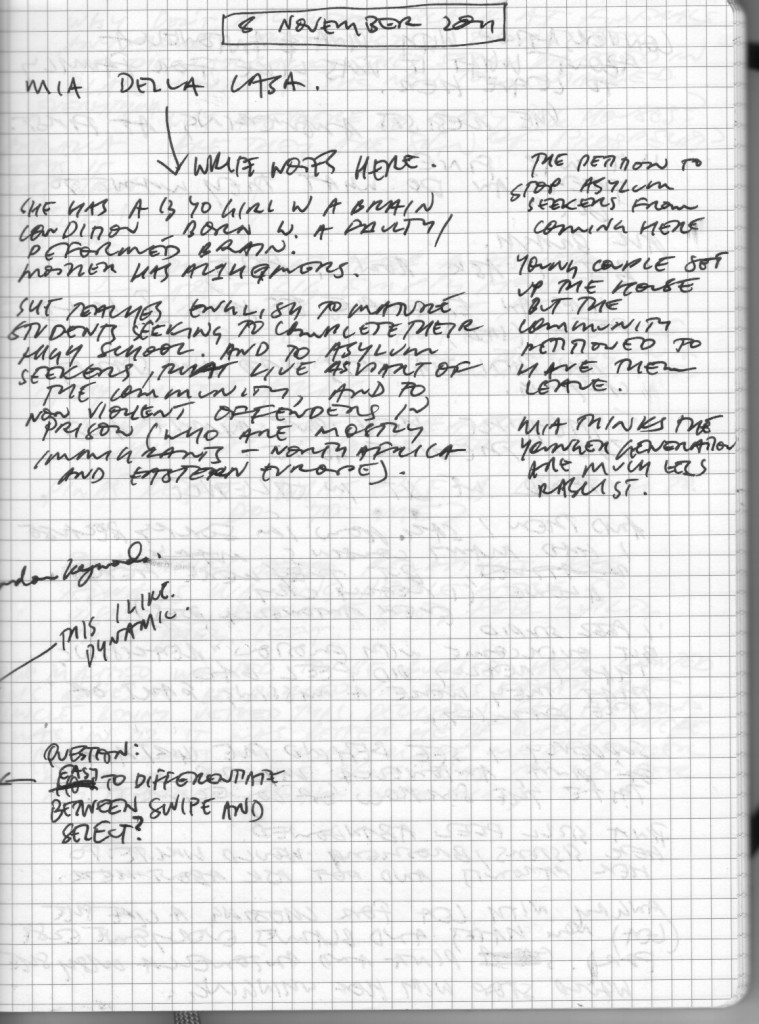 8 NOVEMBER 2011
MIA DELLA CASA.
WRITE NOTES HERE.
SHE HAS A 13 YO GIRL W A BRAIN
CONDITION, BORN W. A FAULTY/
DEFORMED BRAIN.
MOTHER HAS ALZHEIMERS.
SHE TEACHES ENGLISH TO MATURE
STUDENTS SEEKING TO COMPLETE THEIR
HIGH SCHOOL. AND TO ASYLUM
SEEKERS, THAT LIVE AS PART OF
THE COMMUNITY, AND TO
NON VIOLENT OFFENDERS IN
PRISON (WHO ARE MOSTLY
IMMIGRANTS - NORTH AFRICA
AND EASTERN EUROPE).
THE PETITION TO
STOP ASYLUM
SEEKERS FROM
COMING HERE
YOUNG COUPLE SET
UP THE HOUSE
BUT THE
COMMUNITY
PETITIONED TO
HAVE THEM
LEAVE.
MIA THINKS THE
YOUNGER GENERATION
ARE MUCH LESS
RASCIST.
THIS I LIKE.
DYNAMIC.
QUESTION:
EASY TO DIFFERENTIATE
BETWEEN SWIPE AND
SELECT?